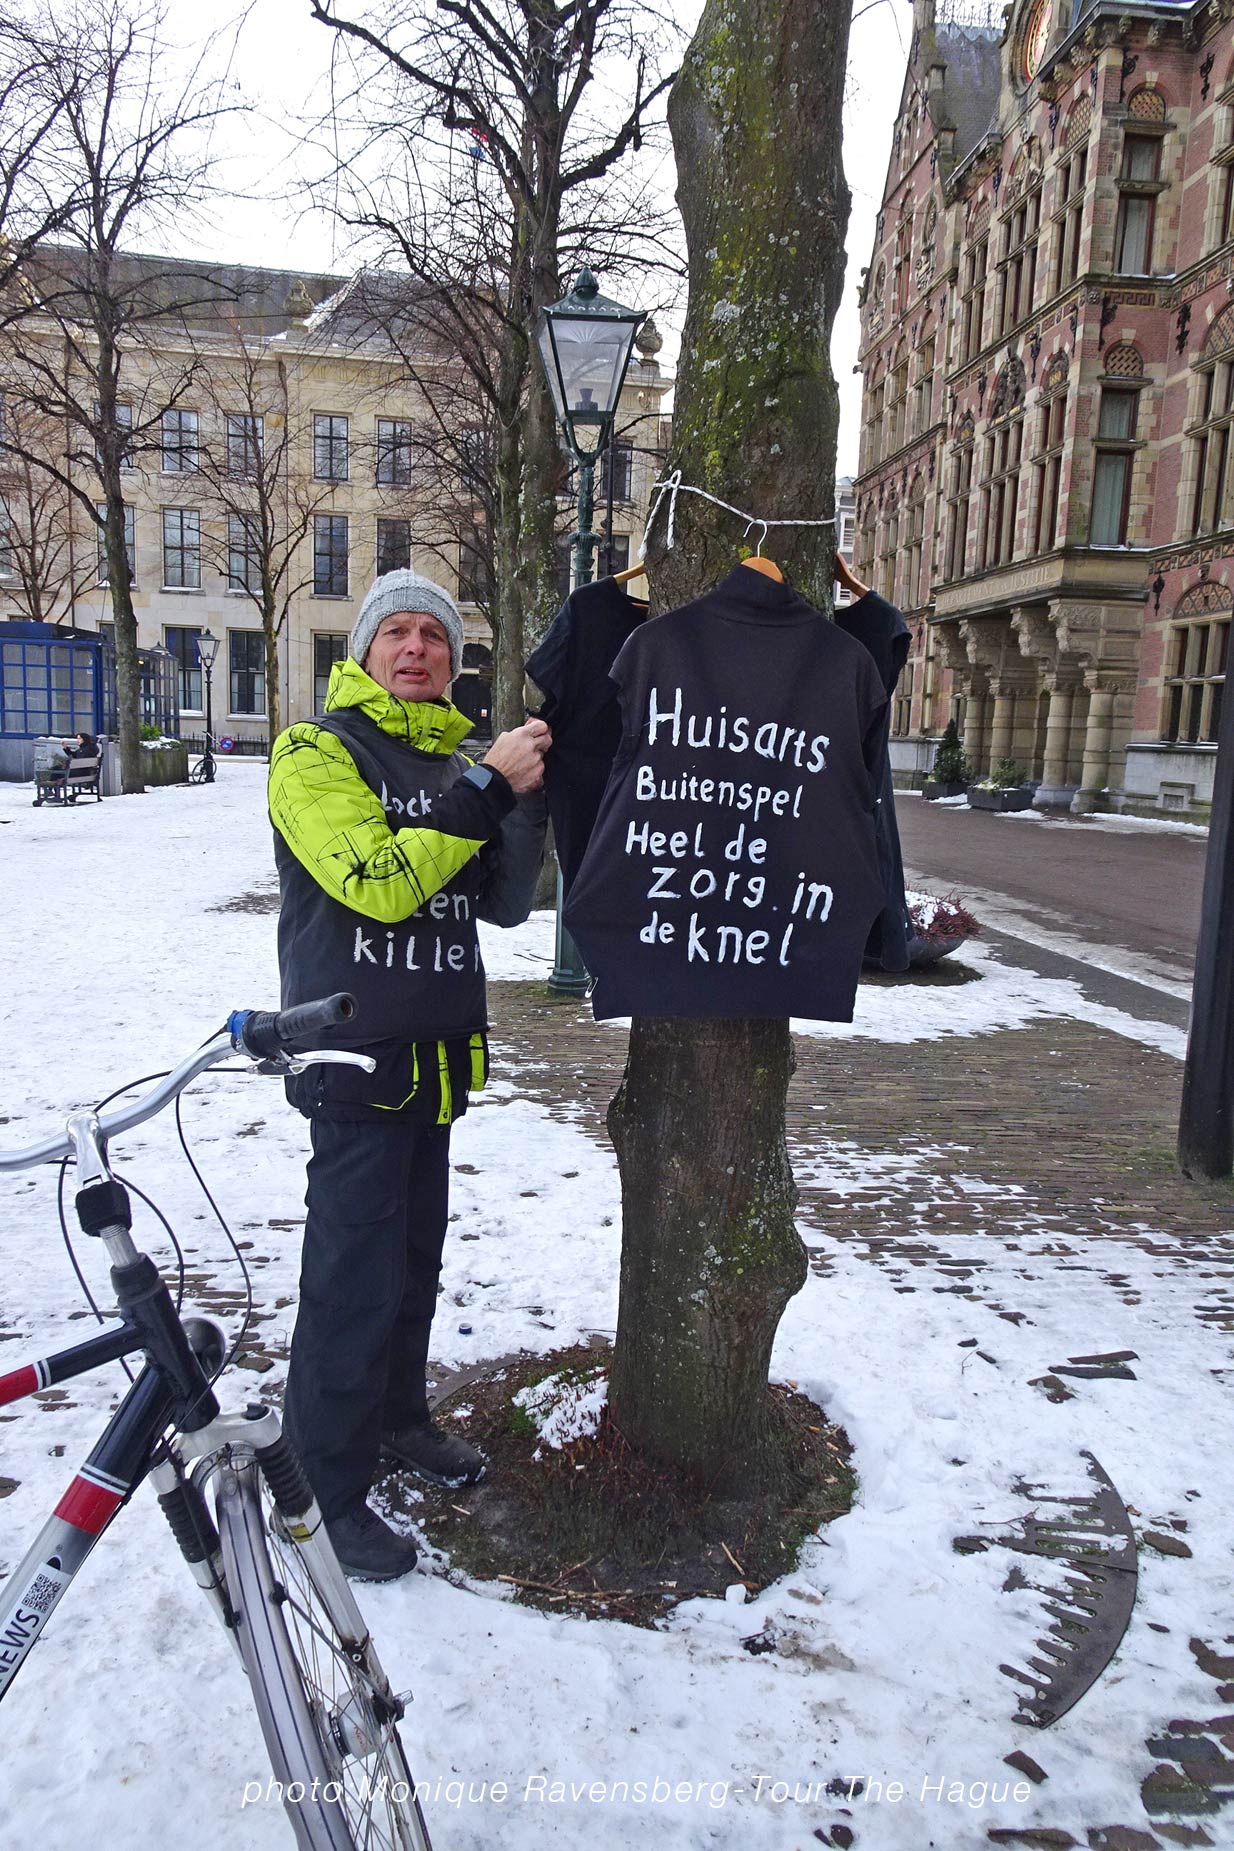 Huisarts
Buitenspel
Heel de
zorg. in
de knel
Lock
killer
NEWS
photo Monique Ravensberg-Tour The Hague